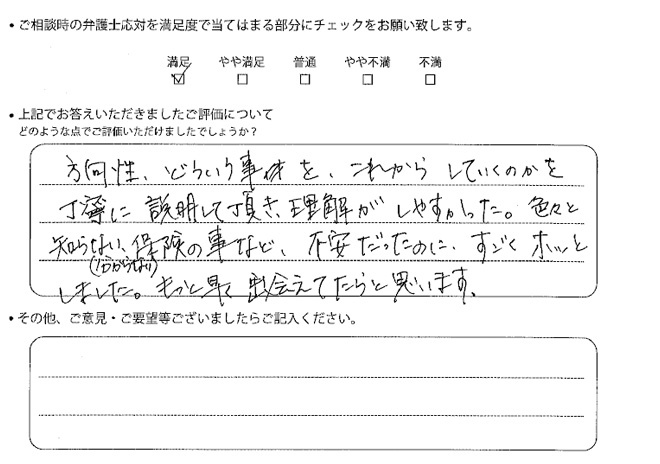 • ご相談時の弁護士応対を満足度で当てはまる部分にチェックをお願い致します。
満足 やや満足 普通 やや不満 不満
• 上記でお答えいただきましたご評価について
どのような点でご評価いただけましたでしょうか?
方向性、どういう事柄を、これからしていくのかを
丁寧に説明して頂き、理解がしやすかった。色々と
知らない、保険の事など、不安だったのに、すごくホッと
(分からない)
しました。もっと早く出会えてたらと思います。
• その他、ご意見・ご要望等ございましたらご記入ください。